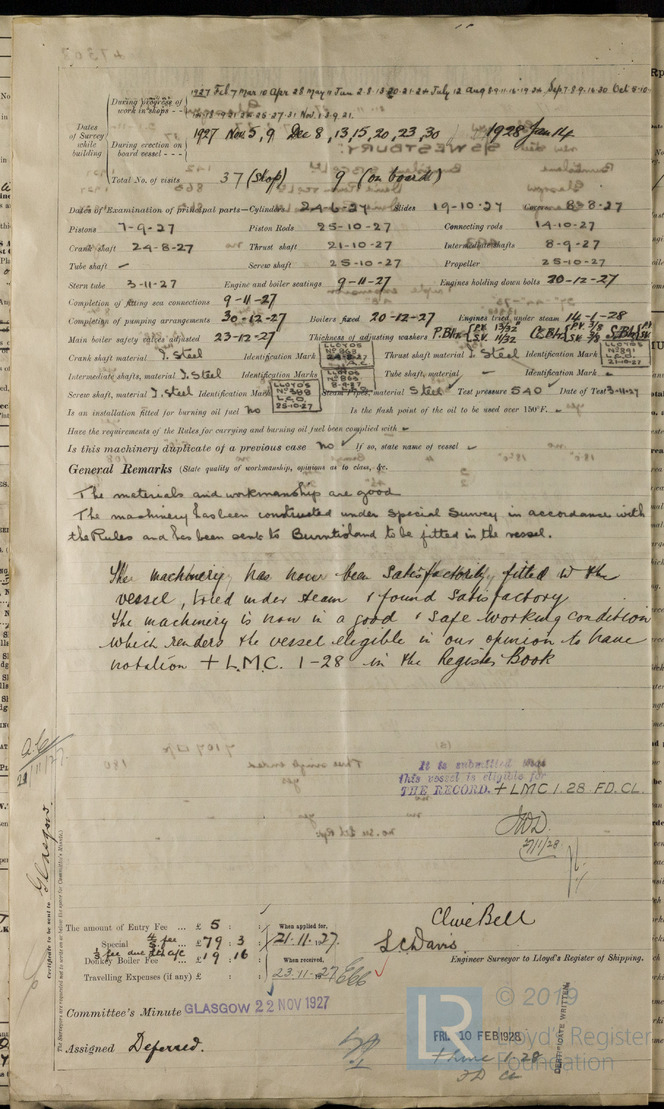 Dates of Survey while building
During progress of work in shops - - 1927 Feb 7 Mar 10 Apr 28 May 11 Jun 2. 8. 13. 20. 21. 24 July 12 Aug 8. 9. 11. 16. 19. 24 Sep 7. 8. 9. 16. 30 Oct 5. 10
25. 27. 31 Nov. 1. 2. 9. 21.
During erection on board vessel - - - 1927 Nov. 5, 9 Dec 8, 13, 15, 20, 23, 30 1928 Jan 14
Total No. of visits 37 (shop) 9 (on board)
Dates of Examination of principal parts—Cylinders 24-6-27 Slides 19-10-27 Covers 8-8-27
Pistons 7-9-27 Piston Rods 25-10-27 Connecting rods 14-10-27
Crank shaft 24-8-27 Thrust shaft 21-10-27 Intermediate shafts 8-9-27
Tube shaft - Screw shaft 25-10-27 Propeller 25-10-27
Stern tube 3-11-27 Engine and boiler seatings 9-11-27 Engines holding down bolts 20-12-27
Completion of fitting sea connections 9-11-27
Completion of pumping arrangements 30-12-27 Boilers fixed 20-12-27 Engines tried under steam 14-1-28
Main boiler safety valves adjusted 23-12-27 Thickness of adjusting washers P.Blr { P.V. 13/32 S.V. 11/32 C.Blr { P.V. 3/8 S.V. 3/8 S.Blr
Crank shaft material I. Steel Identification Mark LLOYDS 24-8-27 Thrust shaft material I. Steel Identification Mark LLOYDS
Intermediate shafts, material I. Steel Identification Marks LLOYDS Tube shaft, material - Identification Mark -
Screw shaft, material I. Steel Identification Mark LLOYDS 25-10-27 Steam Pipes, material Steel Test pressure 540 Date of Test 3-11-27
Is an installation fitted for burning oil fuel no Is the flash point of the oil to be used over 150°F. -
Have the requirements of the Rules for carrying and burning oil fuel been complied with -
Is this machinery duplicate of a previous case no If so, state name of vessel -
General Remarks (State quality of workmanship, opinions as to class, &c.
The materials and workmanship are good
The machinery has been constructed under Special Survey in accordance with
the Rules and has been sent to Burntisland to be fitted in the vessel.
The machinery has now been satisfactorily fitted in the
vessel, tried under steam & found satisfactory
The machinery is now in a good & safe working condition
which renders the vessel eligible in our opinion to have
notation + L.M.C. 1-28 in the Register Book
It is submitted that
this vessel is eligible for
THE RECORD. + LMC 1.28 FD. CL.
27/1/28
Certificate to be sent to Glasgow.
The amount of Entry Fee ... £ 5 : When applied for,
Special 4/5 fee £ 79 : 3 : 21.11.27.
1/5 fee due
Donkey Boiler Fee ... £ 19 : 16 When received,
Travelling Expenses (if any) £ : 23.11.27
Clive Bell
L.C. Davis
Engineer Surveyor to Lloyd's Register of Shipping.
Committee's Minute GLASGOW 22 NOV 1927
Assigned Deferred.
FRI. 10 FEB 1928
+ Lmc 1-28
FD CL
CERTIFICATE WRITTEN
LR
© 2019
Lloyd's Register
Foundation